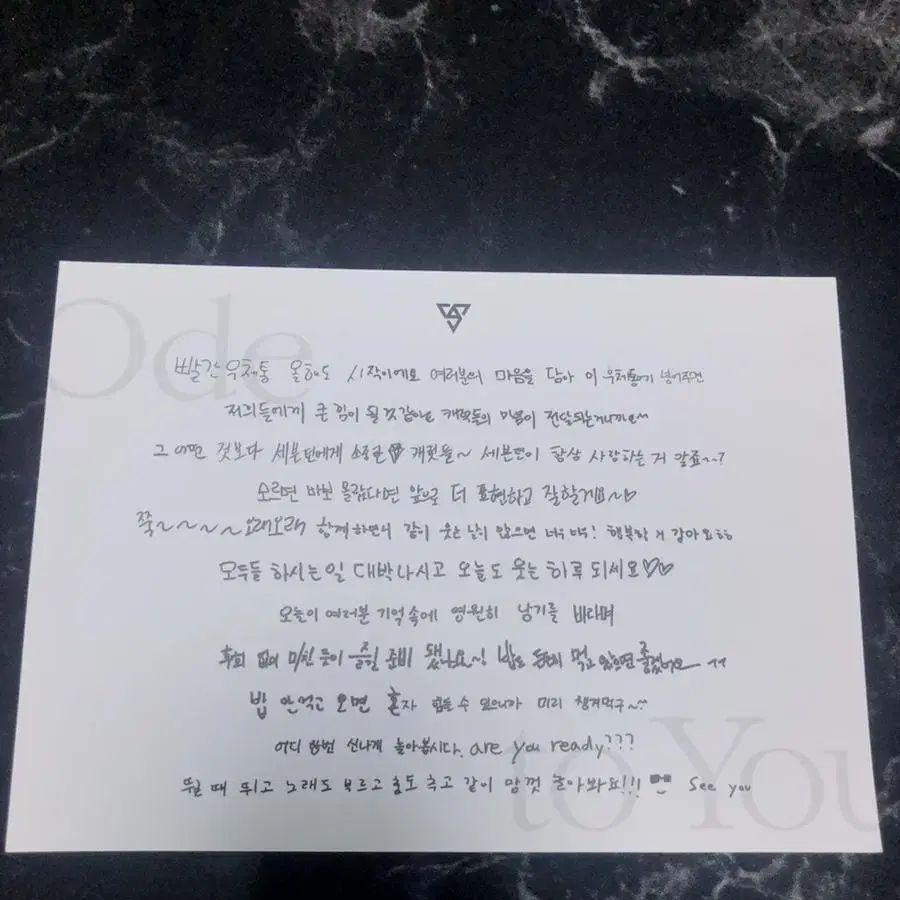 Ode
빨간우체통 올해도 시작이에요 여러분의 마음을 담아 이 우체통에 넣어주면
저희들에게 큰 힘이 될 것 같아요 캐럿들의 마음이 전달되는거니까요~
그 어떤 것보다 세븐틴에게 소중한♡ 캐럿들~ 세븐틴이 항상 사랑하는 거 알죠~?
모르면 바보 몰랐다면 앞으로 더 표현하고 잘할게요~♡
쭉~~~~오래오래 함께하면서 같이 웃는 날이 많으면 너무 행복할 거 같아요
모두들 하시는일 대박나시고 오늘도 웃는 하루 되세요♡♡
오늘이 여러분 기억속에 영원히 남기를 바라며
후회 없이 미친 듯이 즐길 준비 됐나요~! 밥도 든든히 먹고 있으면 좋겠어요
밥 안먹고 오면 혼자 힘들 수 있으니까 미리 챙겨먹구~
어디 한번 신나게 놀아봅시다. are you ready???
뛸 때 뛰고 노래도 부르고 춤도 추고 같이 맘껏 놀아봐요!!! See you
to You